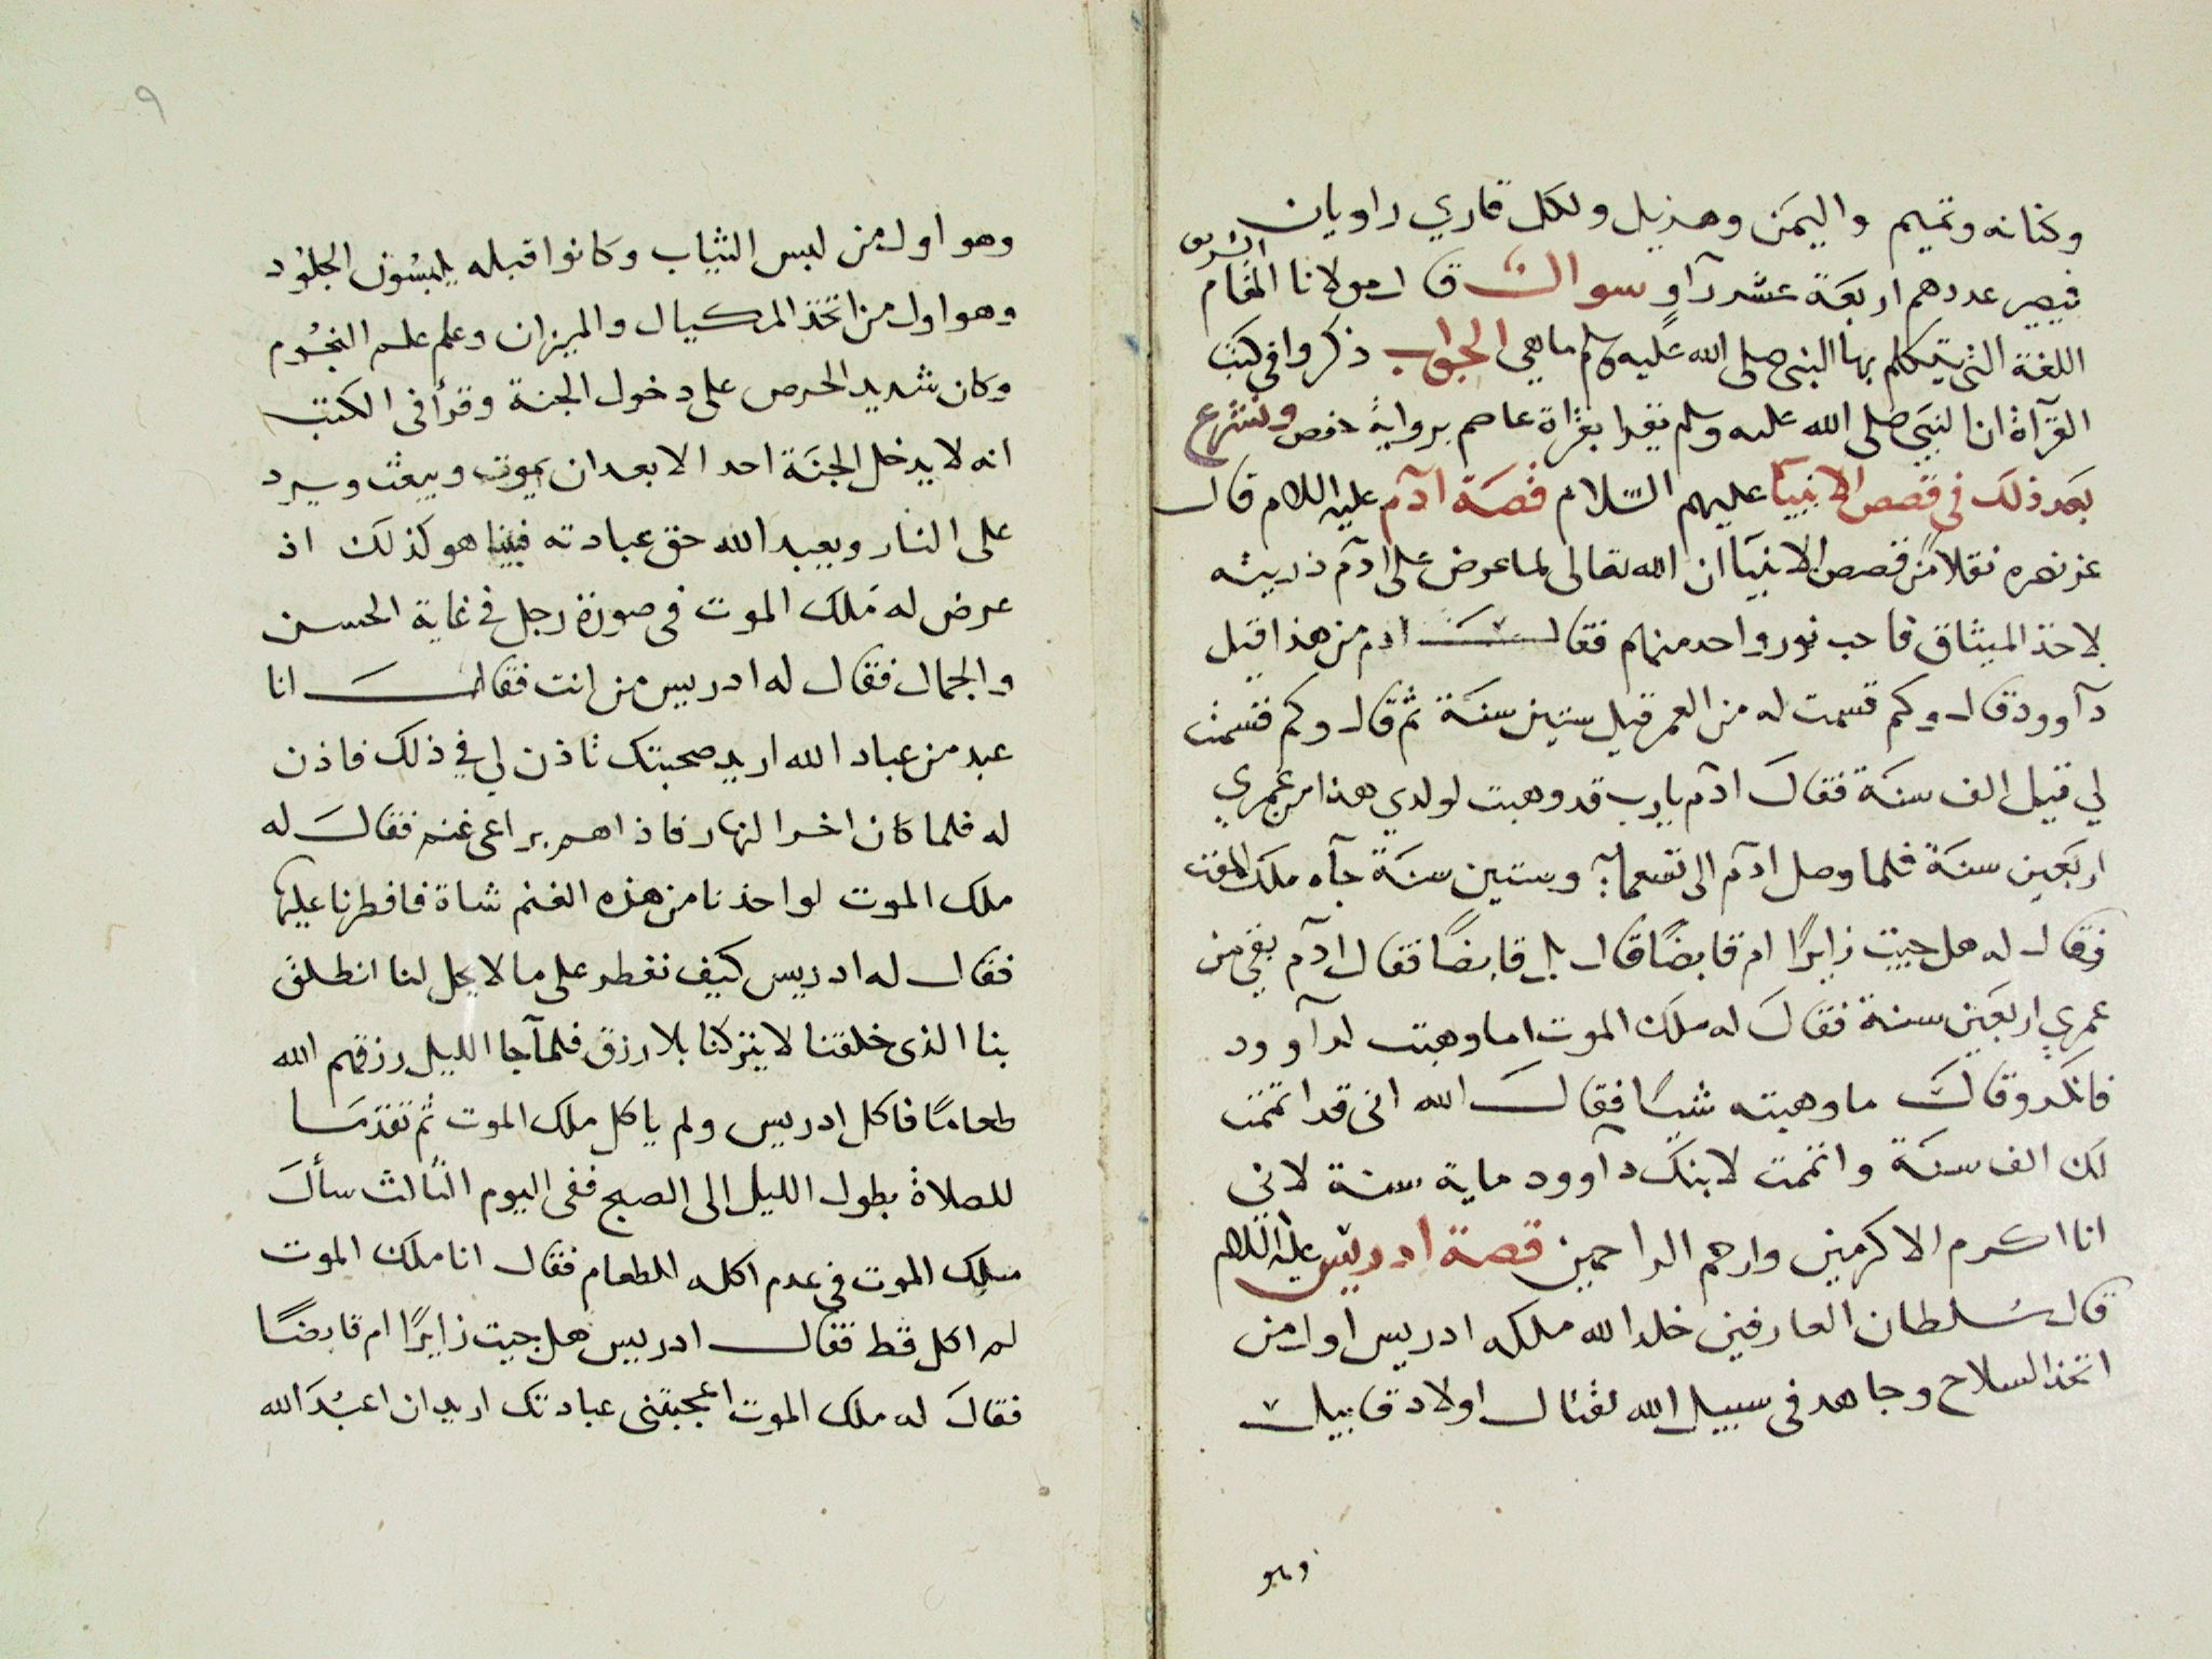 وكنانه وتميم واليمن وهذيل ولكل قاري راويان
فيصير عددهم اربعة عشر راو سوال قال مولانا المقام الشريف
اللغة التي يتكلم بها النبي صلى الله عليه وسلم ما هي الجواب ذكروا في كتب
القرآة ان النبي صلى الله عليه وسلم يقرا بقراة عاصم برواية حفص ونشرع
بعد ذلك في قصص الانبيآ عليهم السلام قصة آدم عليه السلام قال
عز نصره نقلا من قصص الانبيآ ان الله تعالى لما عرض على ادم ذريته
لاخذ الميثاق فاحب نور واحد منهم فقال ادم من هذا قيل
دآوود قال وكم قسمت له من العمر قيل ستين سنة ثم قال وكم قسمت
لي قيل الف سنة فقال ادم يارب قد وهبت لولدي هذا من عمري
اربعين سنة فلما وصل ادم الى تسعماية وستين سنة جآه ملك الموت
فقال له هل جيت زايرًا ام قابضًا قال بل قابضًا فقال ادم بقي من
عمري اربعين سنة فقال له ملك الموت اما وهبت لدآوود
فانكر وقال ما وهبته شيًا فقال الله اني قد اتممت
لك الف سنة واتممت لابنك دآوود ماية سنة لاني
انا اكرم الاكرمين وارحم الراحمين قصة ادريس عليه السلام
قال سلطان العارفين خلد الله ملكه ادريس اول من
اتخذ السلاح وجاهد في سبيل الله لقتال اولاد قابيل
وهو
٩
وهو اول من لبس الثياب وكانوا قبله يلبسون الجلود
وهو اول من اتخذ المكيال والميزان وعلم علم النجوم
وكان شديد الحرص على دخول الجنة وقرأ في الكتب
انه لا يدخل الجنة احد الا بعد ان يموت ويبعث ويرد
على النار ويعبد الله حق عبادته فبينا هو كذلك اذ
عرض له ملك الموت في صورة رجل في غاية الحسن
والجمال فقال له ادريس من انت فقال انا
عبد من عباد الله اريد صحبتك تاذن لي في ذلك فاذن
له فلما كان اخر النهار فاذا هم براعى غنم فقال له
ملك الموت لو اخذنا من هذه الغنم شاة فافطرنا عليها
فقال له ادريس كيف نفطر على ما لا يحل لنا انطلق
بنا الذي خلقنا لا يتركنا بلا رزق فلمآ جا الليل رزقهم الله
طعامًا فاكل ادريس ولم ياكل ملك الموت ثم تقدما
للصلاة بطول الليل الى الصبح ففي اليوم الثالث سأل
ملك الموت في عدم اكله الطعام فقال انا ملك الموت
لم اكل قط فقال ادريس هل جيت زايرًا ام قابضًا
فقال له ملك الموت اعجبتني عبادتك اريد ان اعبد الله